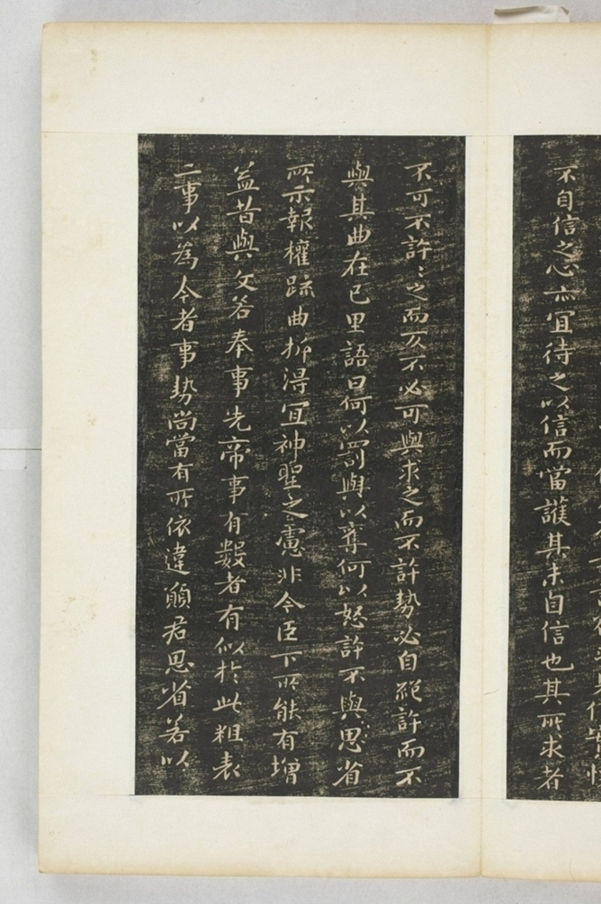 不自信之心亦宜待之以信而當護其未自信也其所求者
不可不許〻之而反不必可與求之而不許勢必自絕許而不
與其曲在已里語曰何以罰與以奪何以怒許不與思省
所示報權疏曲折得宜神聖之慮非今臣下所能有增
益昔與文若奉事先帝事有數者有似於此粗表
二事以為今者事勢尚當有所依違願君思省若以